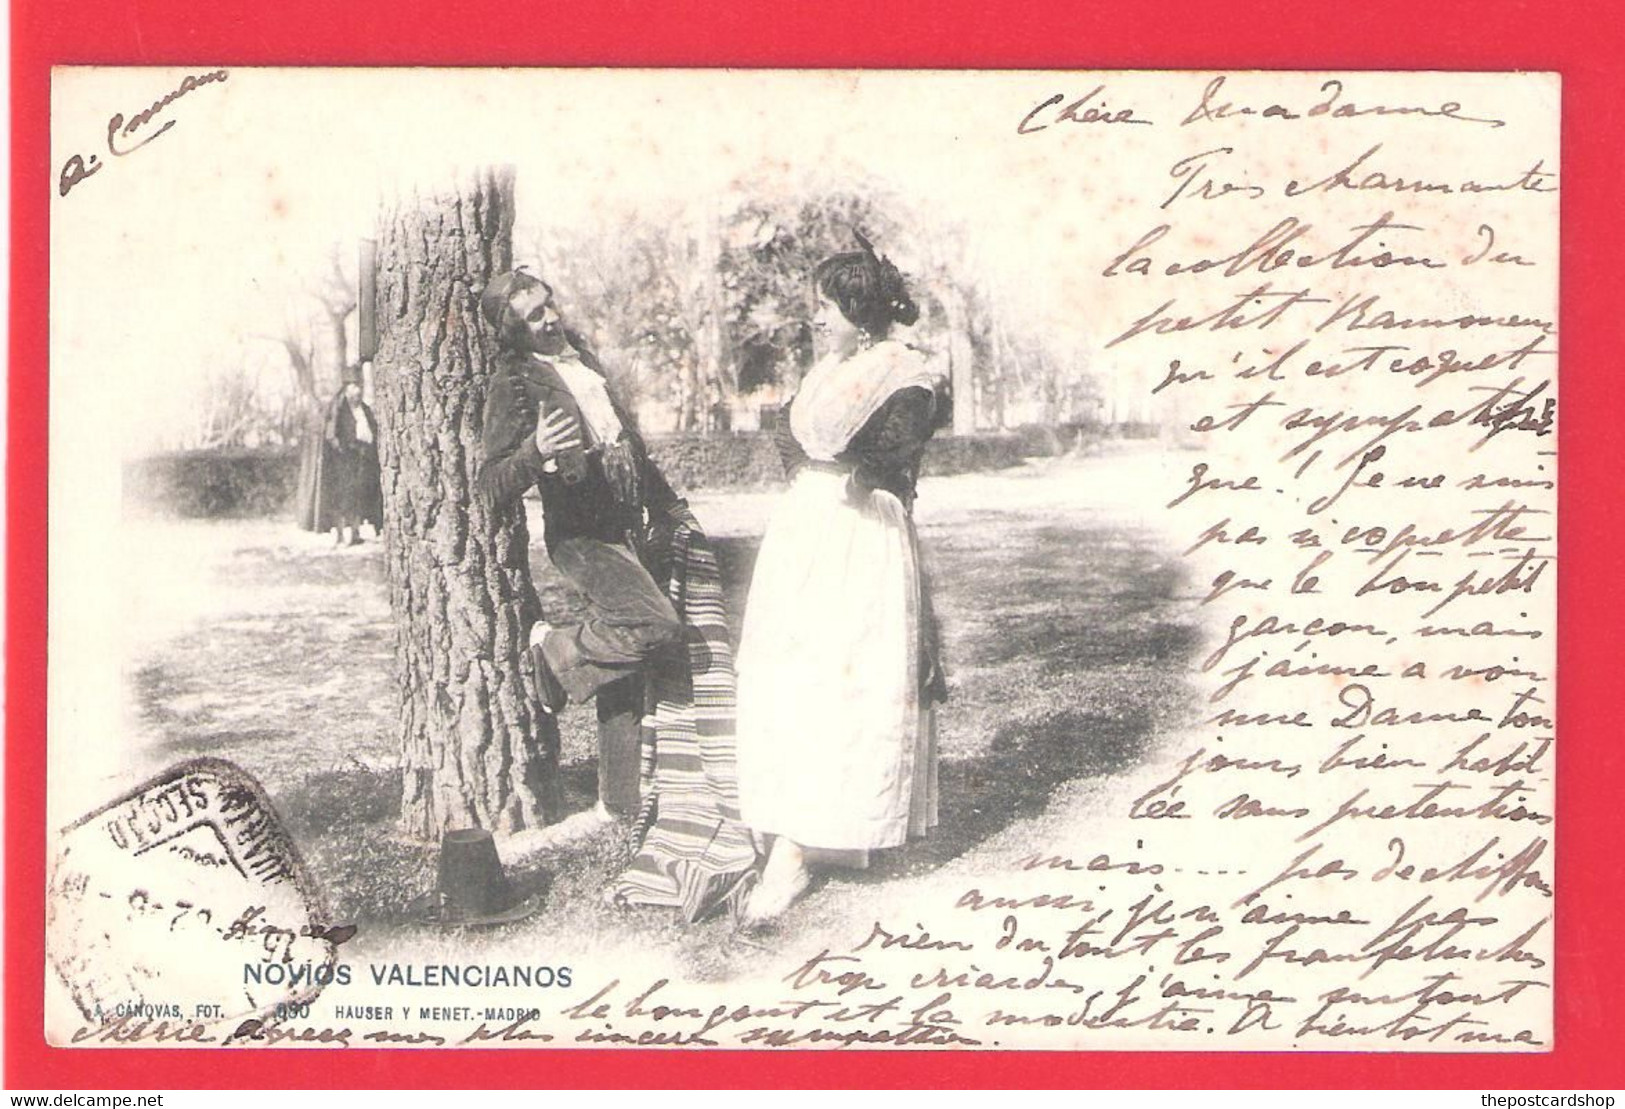 Chère Madame
Très charmante
la collection du
petit Ramoneur
qu'il est coquet
et sympathi
que! Je ne suis
pas si coquette
que le bon petit
garçon, mais
j'aime a voir
une Dame tou
jours, bien habil-
lée sans pretentions
mais.... pas de chiffons
aussi, je n'aime pas
rien du tout les franfeluches
trop criardes, j'aime surtout
le bon gout et la modestie. A bientot ma
chérie, agreez mes plus sinceres sympathies.
SECÇÃO
NOVIOS VALENCIANOS
A. CÁNOVAS, FOT. 690 HAUSER Y MENET.-MADRID
thepostcardshop